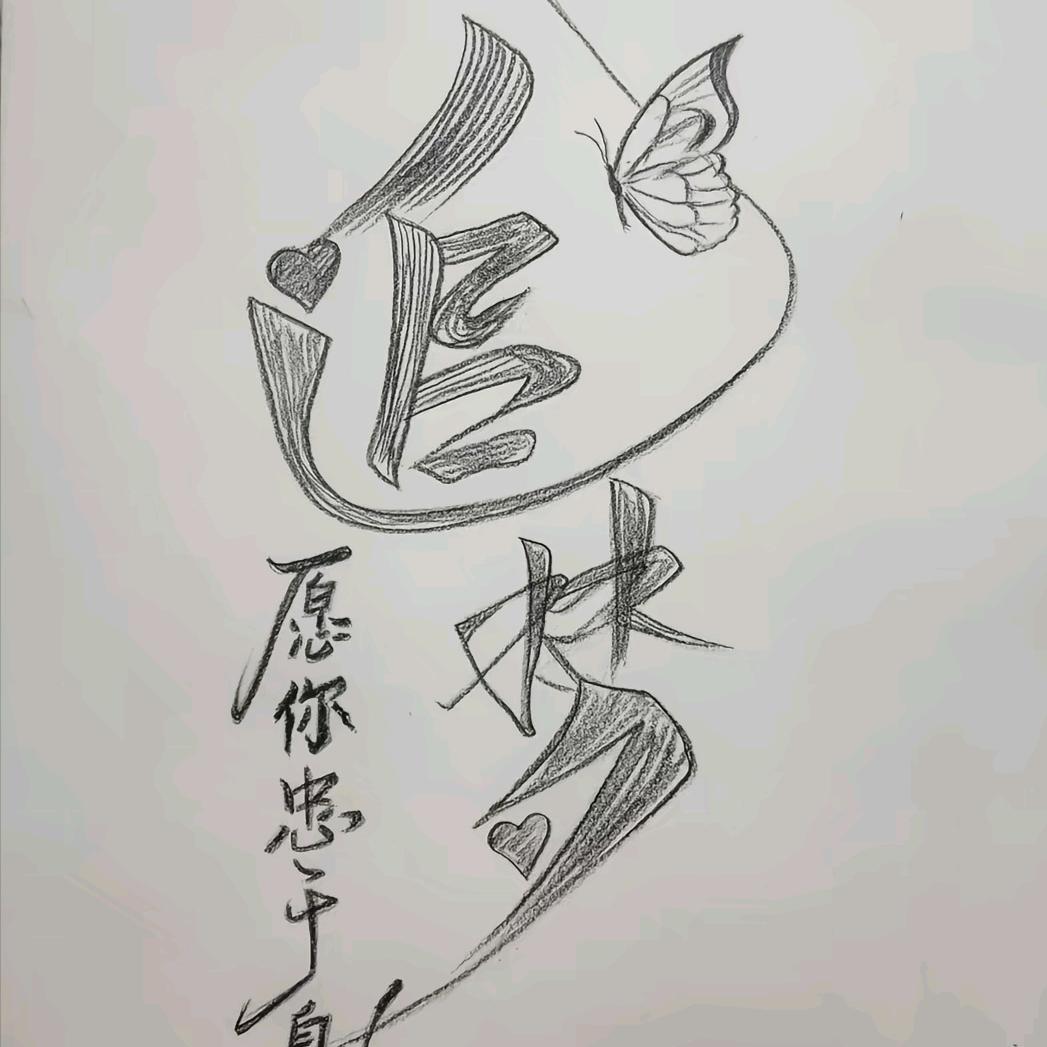 追梦
愿你忠于自